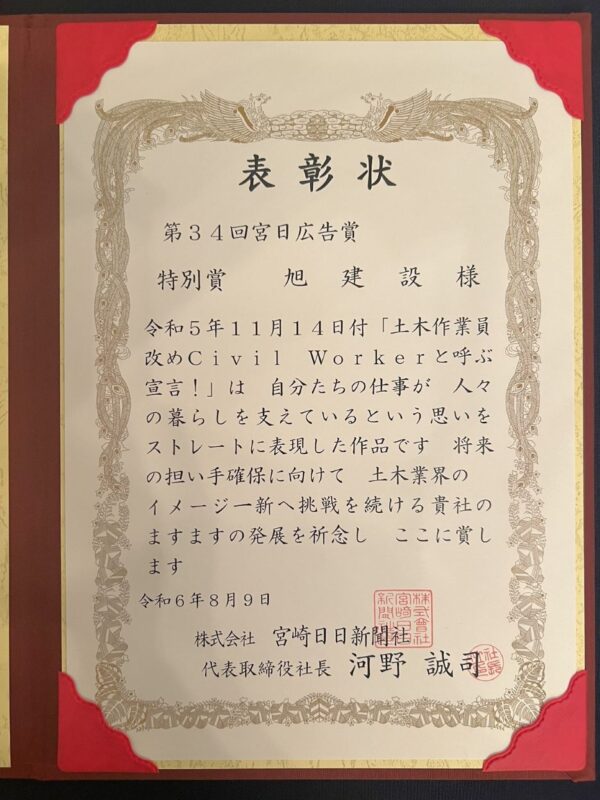 表彰状
第34回宮日広告賞
特別賞 旭建設様
令和5年11月14日付「土木作業員
改めCivil Workerと呼ぶ
宣言！」は 自分たちの仕事が 人々
の暮らしを支えているという思いを
ストレートに表現した作品です 将来
の担い手確保に向けて 土木業界の
イメージ一新へ挑戦を続ける貴社の
ますますの発展を祈念し ここに賞し
ます
令和6年8月9日
株式会社 宮崎日日新聞社
株式會社宮崎日日新聞社
代表取締役社長 河野誠司